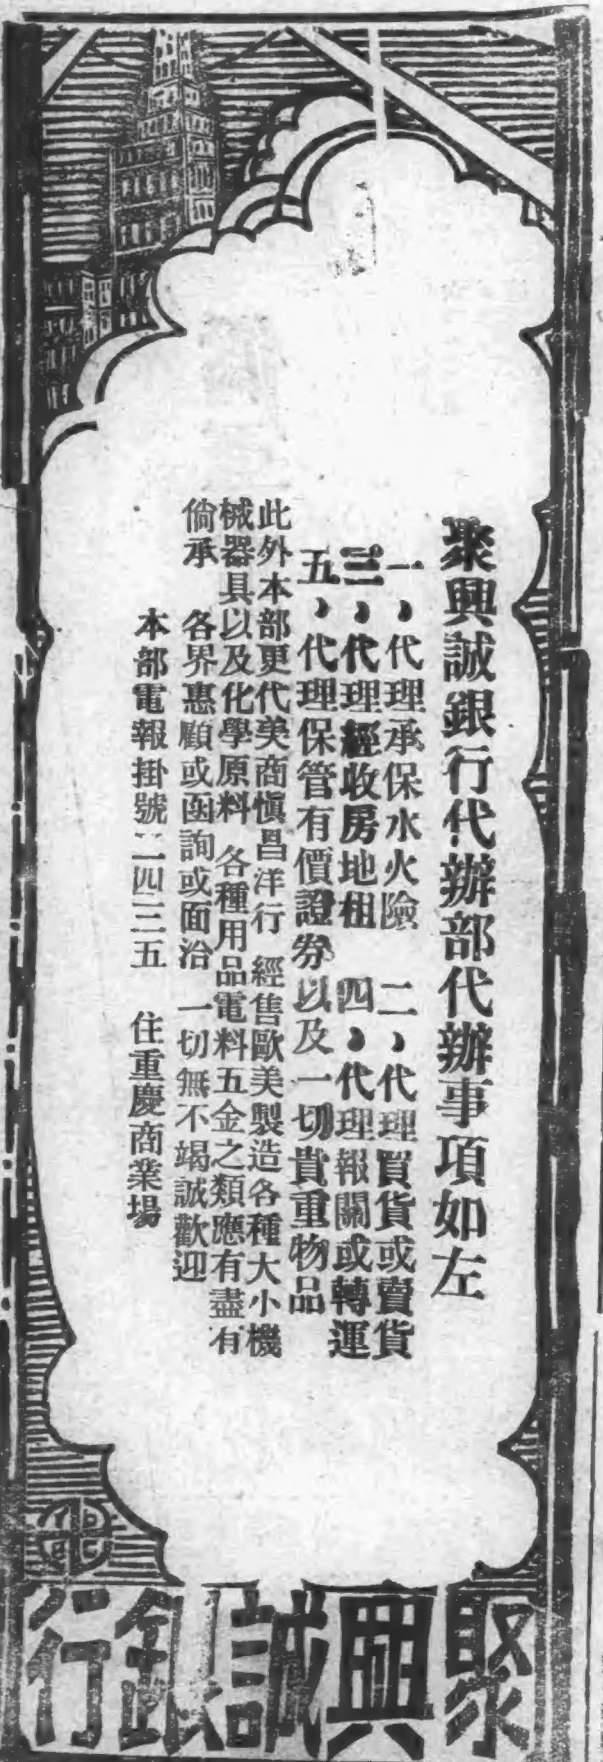 聚興誠銀行代辦部代辦事項如左
一，代理承保水火險　二，代理買貨或賣貨
三，代理經收房地租　四，代理報關或轉運
五，代理保管有價證券以及一切貴重物品
此外本部更代美商慎昌洋行　經售歐美製造各種大小機
械器具以及化學原料　各種用品電料五金之類應有盡有
倘承　各界惠顧或函詢或面洽　一切無不竭誠歡迎
本部電報掛號二四三五　住重慶商業場
聚興誠銀行